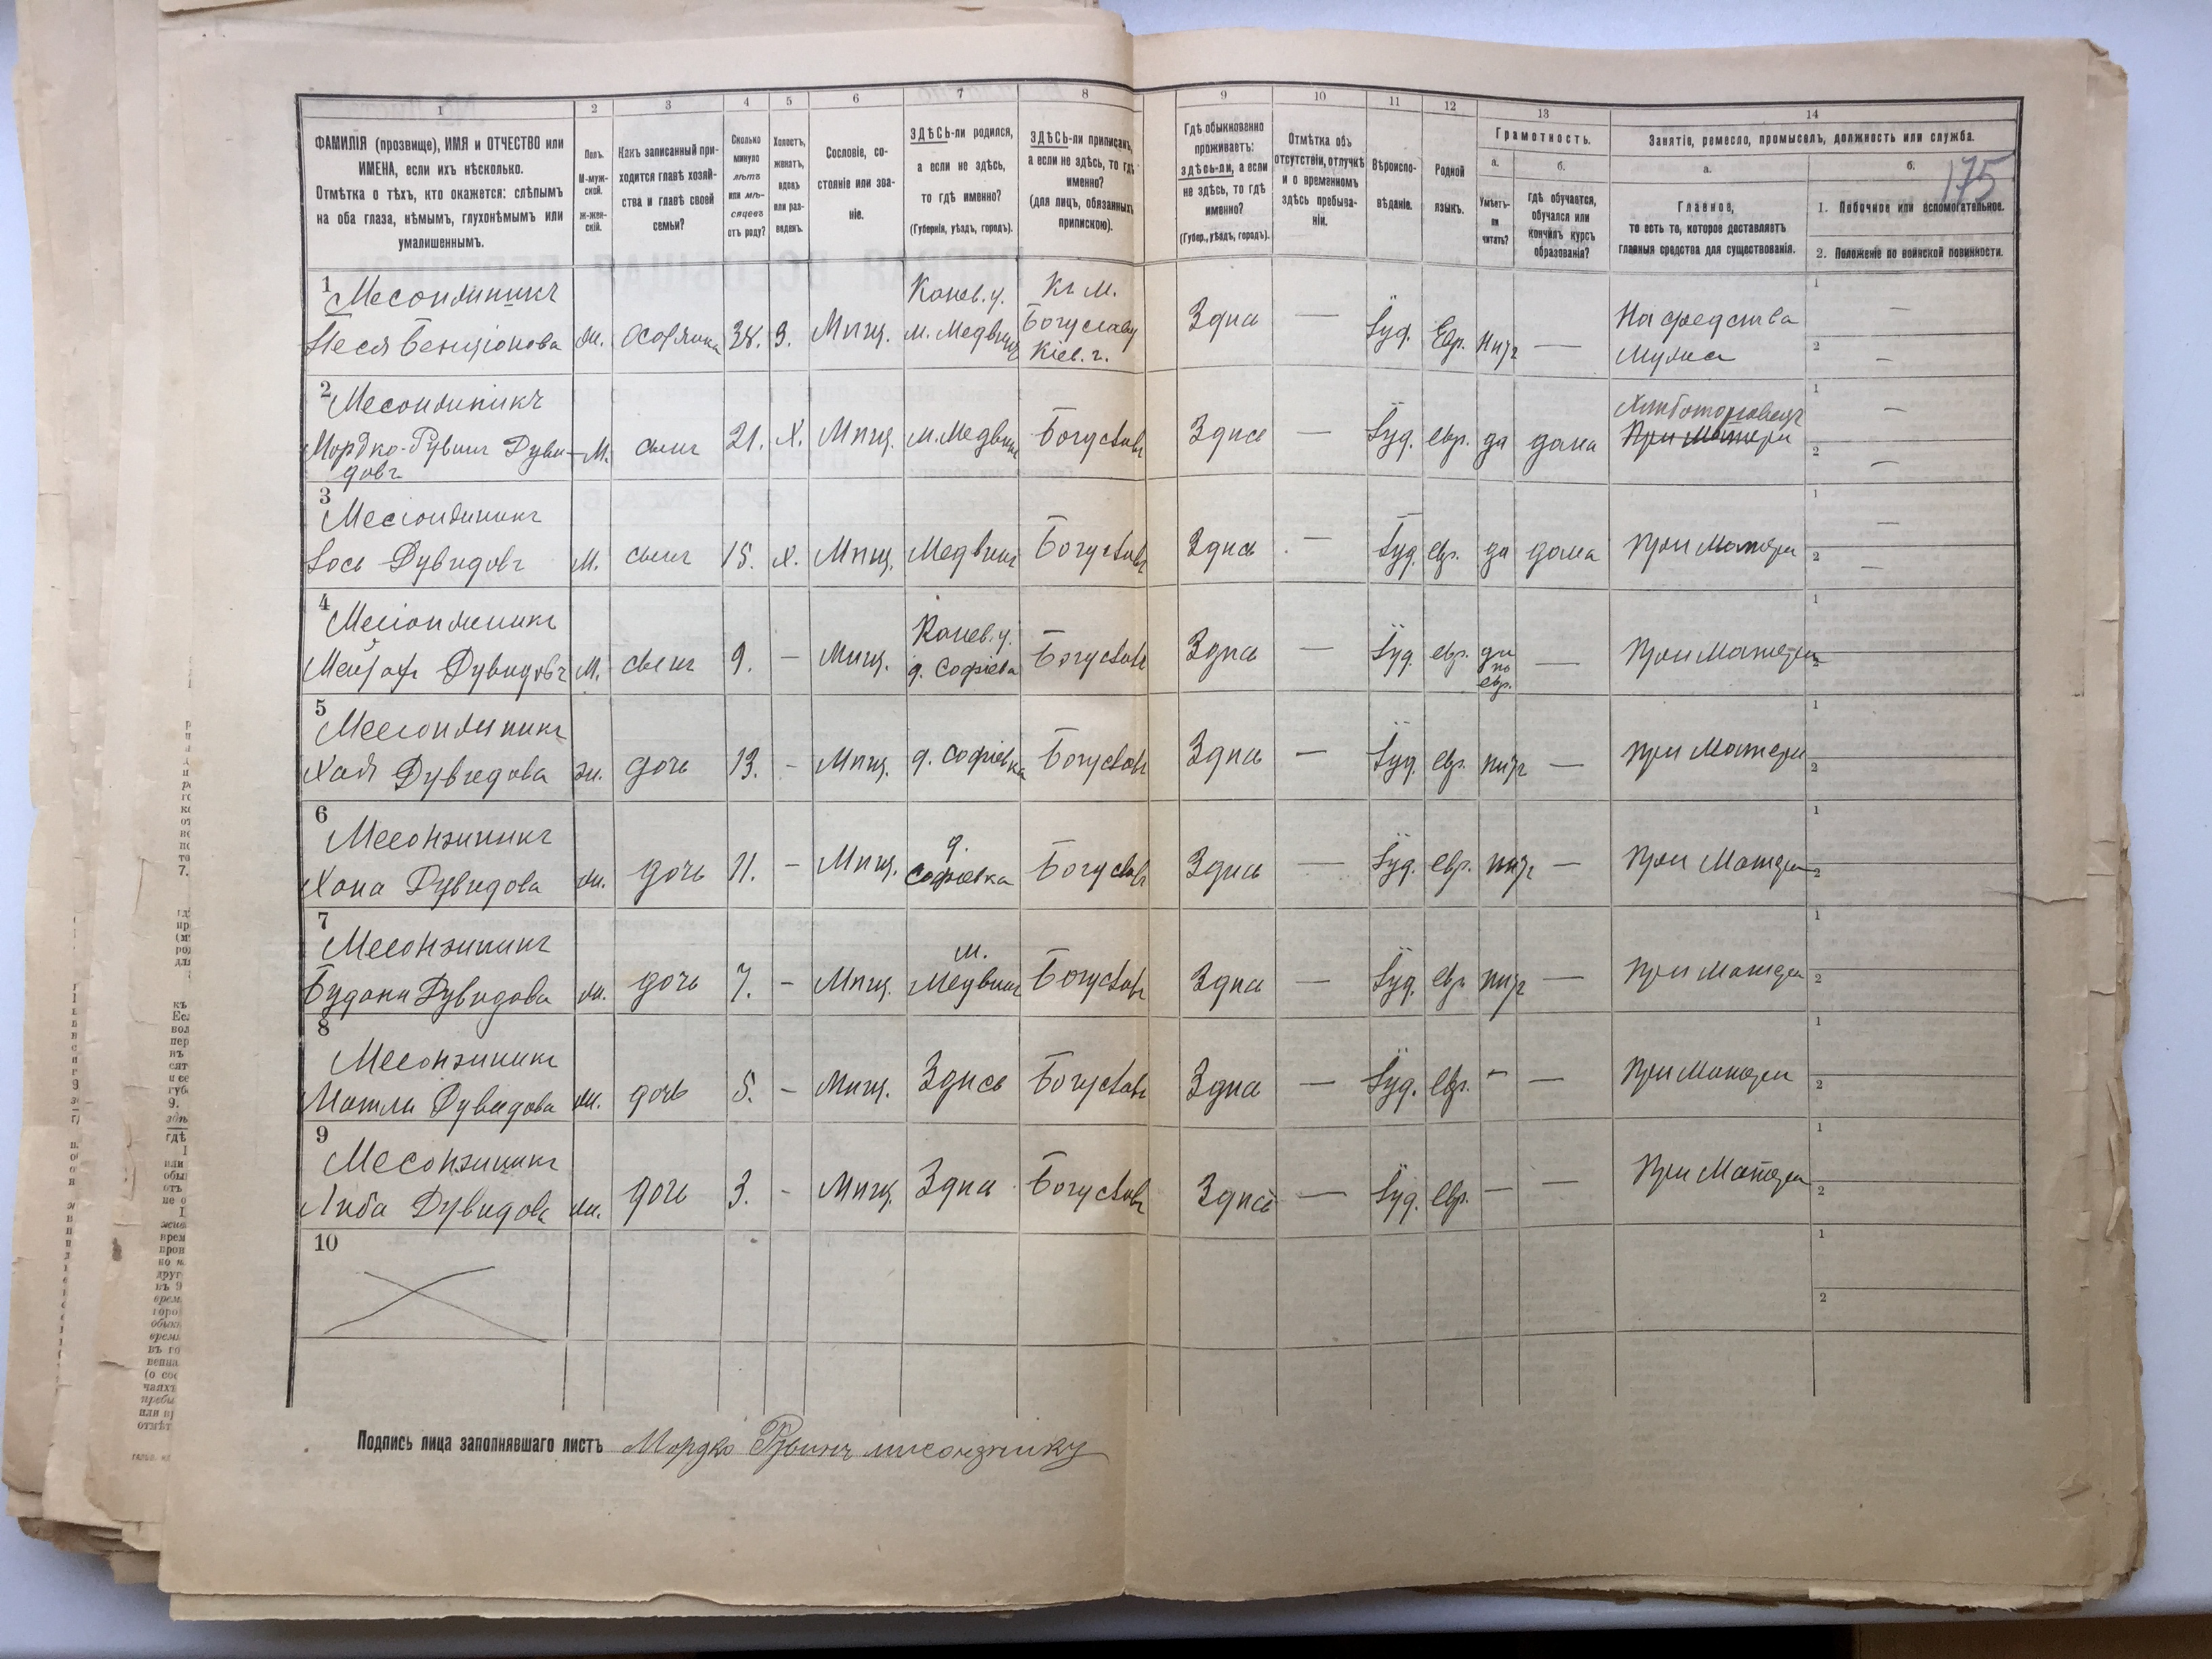 175
1 2 3 4 5 6 7 8 9 10 11 12 13 14
ФАМИЛІЯ (прозвище), ИМЯ и ОТЧЕСТВО или
ИМЕНА, если ихъ нѣсколько.
Отмѣтка о тѣхъ, кто окажется: слѣпымъ
на оба глаза, нѣмымъ, глухонѣмымъ или
умалишеннымъ.
Полъ.
М-муж-
ской.
Ж-жен-
скій.
Какъ записанный при-
ходится главѣ хозяй-
ства и главѣ своей
семьи?
Сколько
минуло
лѣтъ
или мѣ-
сяцевъ
отъ роду?
Холостъ,
женатъ,
вдовъ
или раз-
веденъ.
Сословіе, со-
стояніе или зва-
ніе.
ЗДѢСЬ-ли родился,
а если не здѣсь,
то гдѣ именно?
(Губернія, уѣздъ, городъ).
ЗДѢСЬ-ли приписанъ,
а если не здѣсь, то гдѣ
именно?
(для лицъ, обязанныхъ
припискою).
Гдѣ обыкновенно
проживаетъ:
здѣсь-ли, а если
не здѣсь, то гдѣ
именно?
(Губер., уѣздъ, городъ).
Отмѣтка объ
отсутствіи, отлучкѣ
и о временномъ
здѣсь пребыва-
ніи.
Вѣроиспо-
вѣданіе.
Родной
языкъ.
Грамотность.
а.
Умѣетъ-
ли
читать?
б.
гдѣ обучается,
обучался или
кончилъ курсъ
образованія?
Занятіе, ремесло, промыселъ, должность или служба.
а.
Главное,
то есть то, которое доставляетъ
главныя средства для существованія.
б.
1. Побочное или вспомогательное.
2. Положеніе по воинской повинности.
1 Месонжникъ Канев. у. Къ м.
Неся Бенціонова ж. 38. З. Мѣщ. м. Медвинъ Богуславу Здѣсь — Іуд. Евр. нѣтъ — На средства
Кіев. г. Мужа
2 Месонжникъ Хлѣботорговецъ
Мордко-Рувинъ Дуви- М. сынъ 21. Х. Мѣщ. м. Медвинъ Богуславъ Здѣсь — Іуд. евр. да дома При Матери
довъ
3 Месіонжникъ
Іось Дувидовъ М. сынъ 15. х. Мѣщ. Медвинъ Богуславъ Здѣсь — Іуд. евр. да дома При Матери
4 Месіонжникъ Канев. у.
Дувидовъ М. сынъ 9. — Мѣщ. д. Софіевка Богуславъ Здѣсь — Іуд. евр. да по евр. — При Матери
5 Месіонжникъ
Хая Дувидова ж. дочь 13. — Мѣщ. д. Софіевка Богуславъ Здѣсь — Іуд. евр. нѣтъ — При Матери
6 Месонзникъ д.
Хана Дувидова ж. дочь 11. — Мѣщ. Софіевка Богуславъ Здѣсь — Іуд. евр. нѣтъ — При Матери
7 Месонзникъ м.
Дувидова ж. дочь 7. — Мѣщ. Медвинъ Богуславъ Здѣсь — Іуд. евр. нѣтъ — При Матери
8 Месонзникъ
Матля Дувидова ж. дочь 5. — Мѣщ. Здѣсь Богуславъ Здѣсь — Іуд. евр. — — При Матери
9 Месонзникъ
Либа Дувидова ж. дочь 3. — Мѣщ. Здѣсь Богуславъ Здѣсь — Іуд. евр. — — При Матери
10
Подпись лица заполнявшаго листъ Мордко Рувинъ